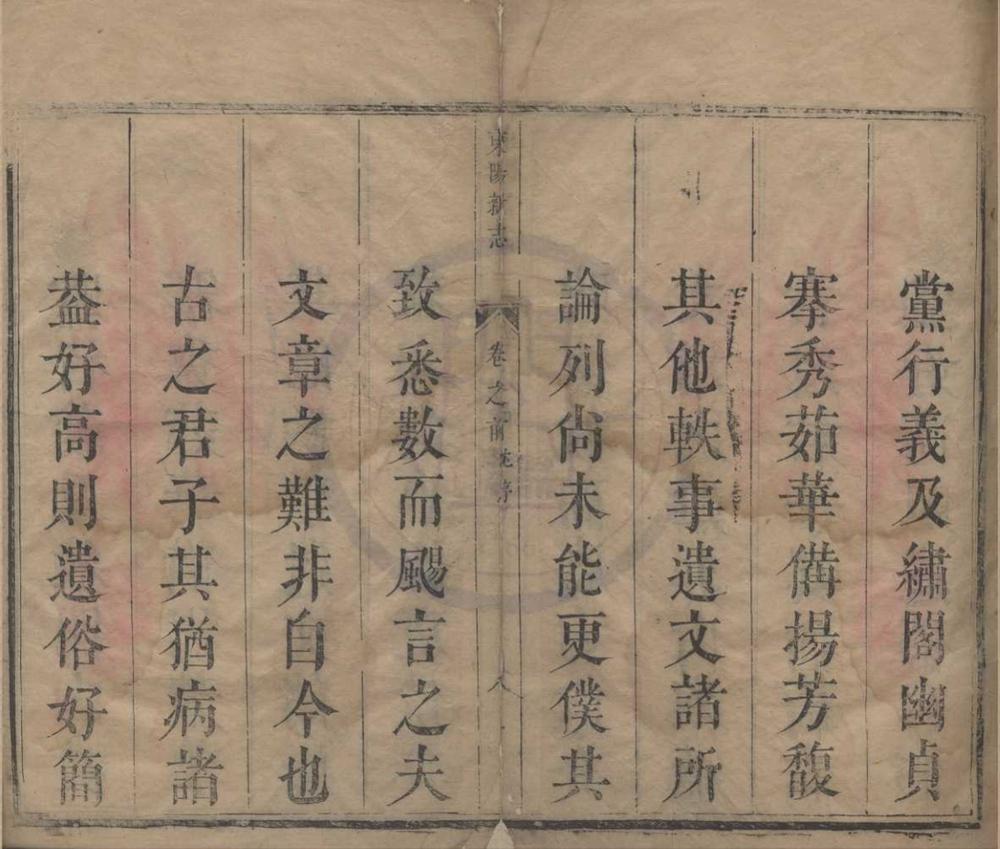 黨行義及繡閣幽貞
搴秀茹華備揚芳馥
其他軼事遺文諸所
論列尙未能更僕其
東陽新志
卷之前
序
八
致悉數而颺言之夫
文章之難非自今也
古之君子其猶病諸
葢好高則遺俗好簡